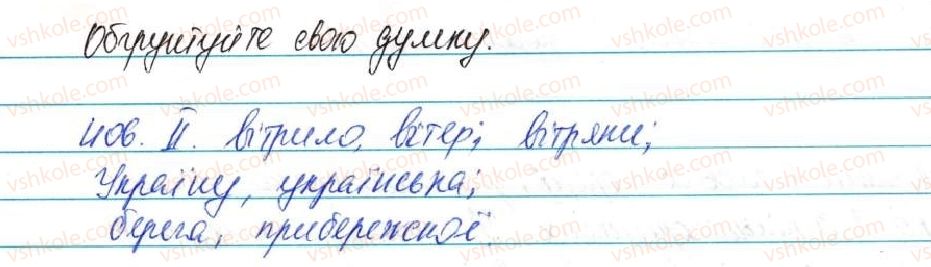 Обґрунтуйте свою думку.
ІІов. ІІ. вітрило, вітер; вітряки;
Україну, українська;
берега, прибережної